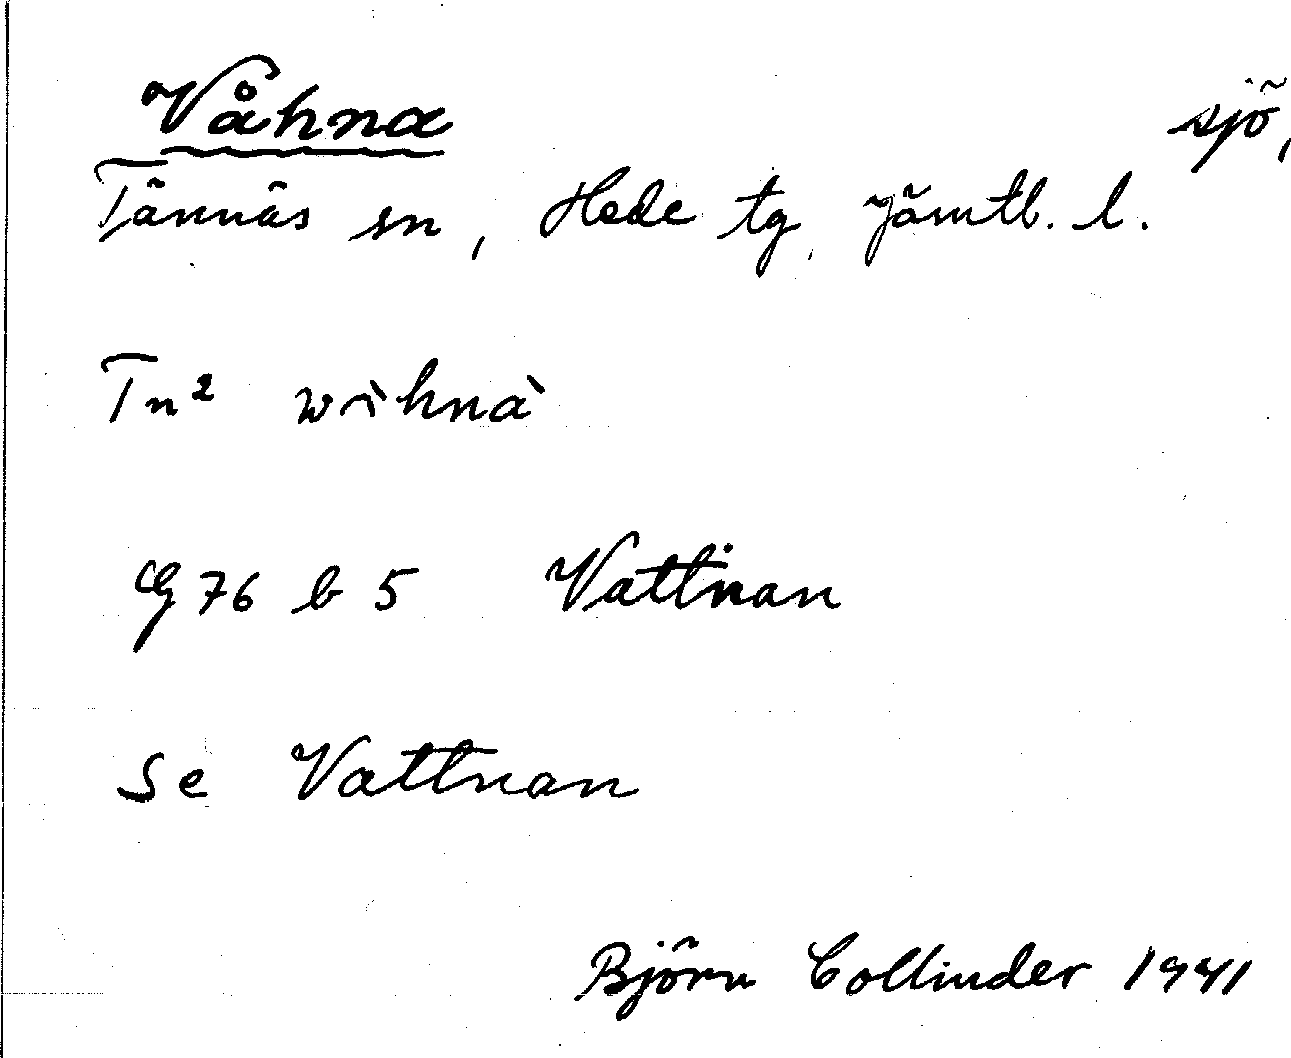 Våhna sjö,
Tännäs sn, Hede tg, Jämtl. l.
Tn²
G 76 b 5 Vattnan
Se Vattnan
Björn Collinder 1941